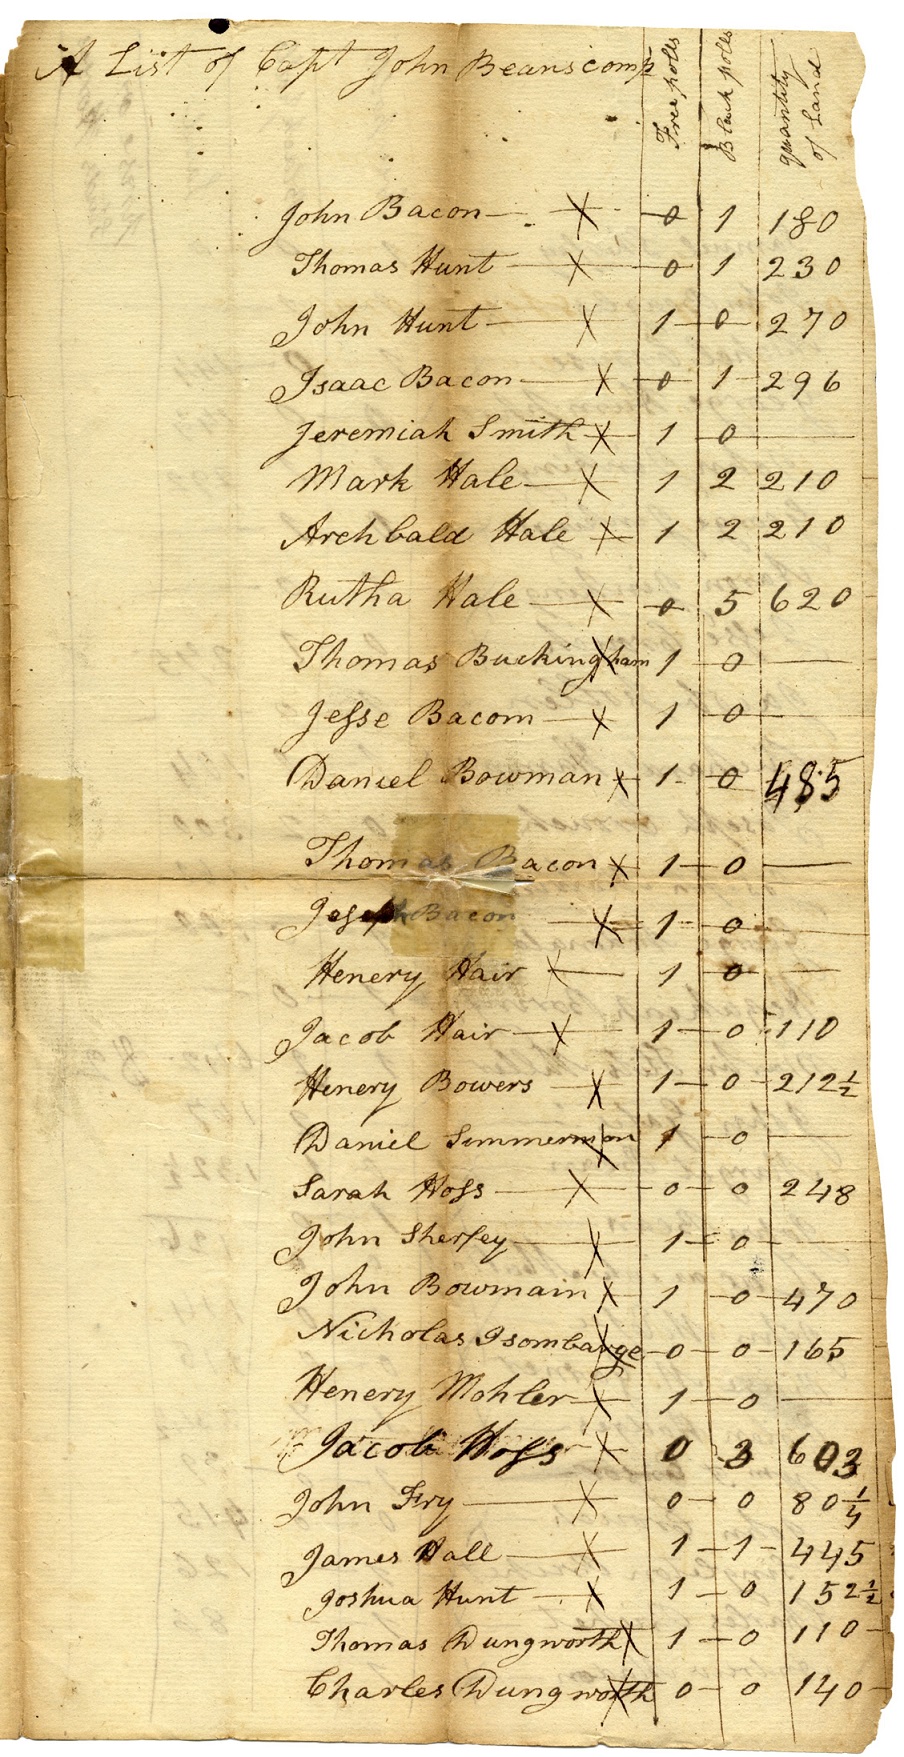 A List of Capt John Beans comp Free polls Black polls quantity of Land
John Bacon — X 0 1 180
Thomas Hunt — X 0 1 230
John Hunt — X 1 0 270
Isaac Bacon — X 0 1 296
Jeremiah Smith X 1 0 —
Mark Hale — X 1 2 210
Archbald Hale X 1 2 210
Rutha Hale — X 0 5 620
Thomas Buckingham X 1 0 —
Jesse Bacom — X 1 0 —
Daniel Bowman X 1 0 485
Thomas Bacon X 1 0 —
Joseph Bacon — X 1 0 —
Henery Hair X — 1 0 —
Jacob Hair — X 1 0 110
Henery Bowers — X 1 0 212½
Daniel Simmermon X 1 0 —
Sarah Hoss — X 0 0 248
John Sherfey — X 1 0 —
John Bowmain X 1 0 470
Nicholas Isombarge X 0 0 165
Henery Mohler X 1 0 —
Jacob Hoss X 0 3 603
John Fry — X 0 0 80¼
James Hall — X 1 1 445
Joshua Hunt — X 1 0 152½
Thomas Dungworth X 1 0 110
Charles Dungworth X 0 0 140